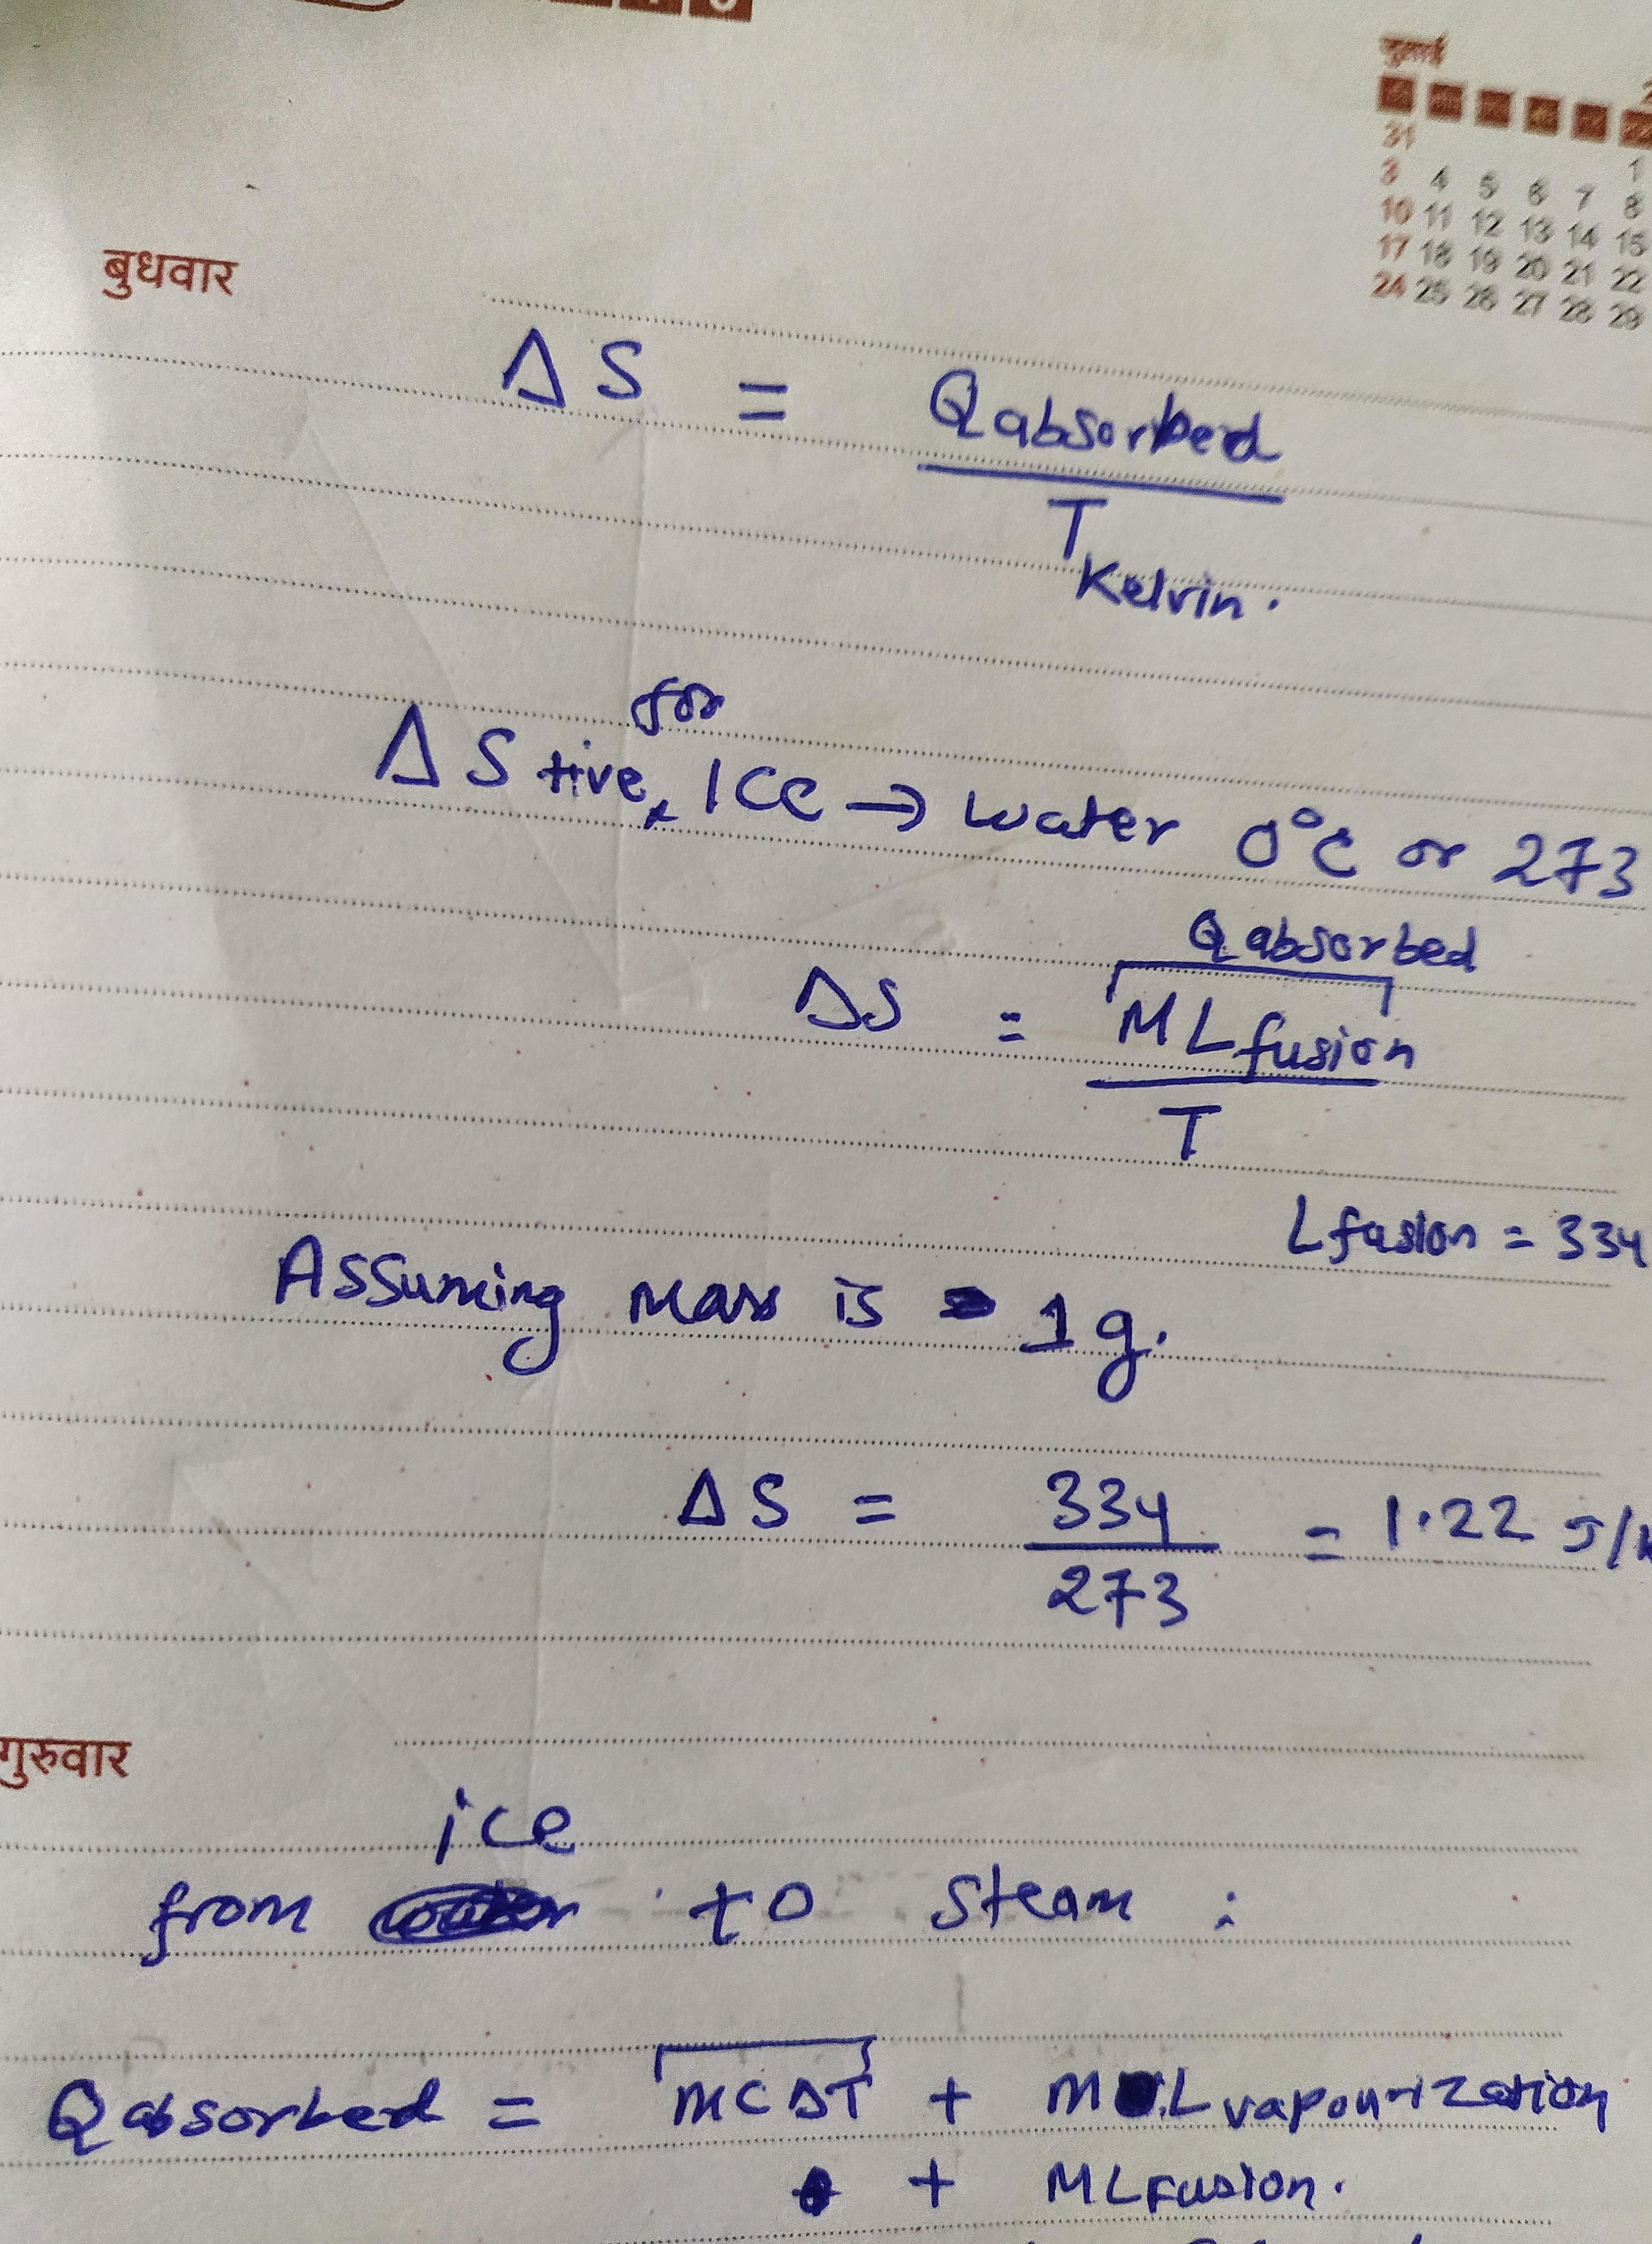 जुलाई
31
1
3 4 5 6 7 8
10 11 12 13 14 15
17 18 19 20 21 22
24 25 26 27 28 29
बुधवार
ΔS = Qabsorbed
T
Kelvin.
for
ΔS +ive, ICE → water 0°C or 273
Qabsorbed
ΔS = MLfusion
T
Lfusion = 334
Assuming mass is 1g.
ΔS = 334 = 1.22 J/K
273
गुरुवार
ice
from water to steam :
Qabsorbed = MCΔT + M Lvapourization
+ MLFusion.